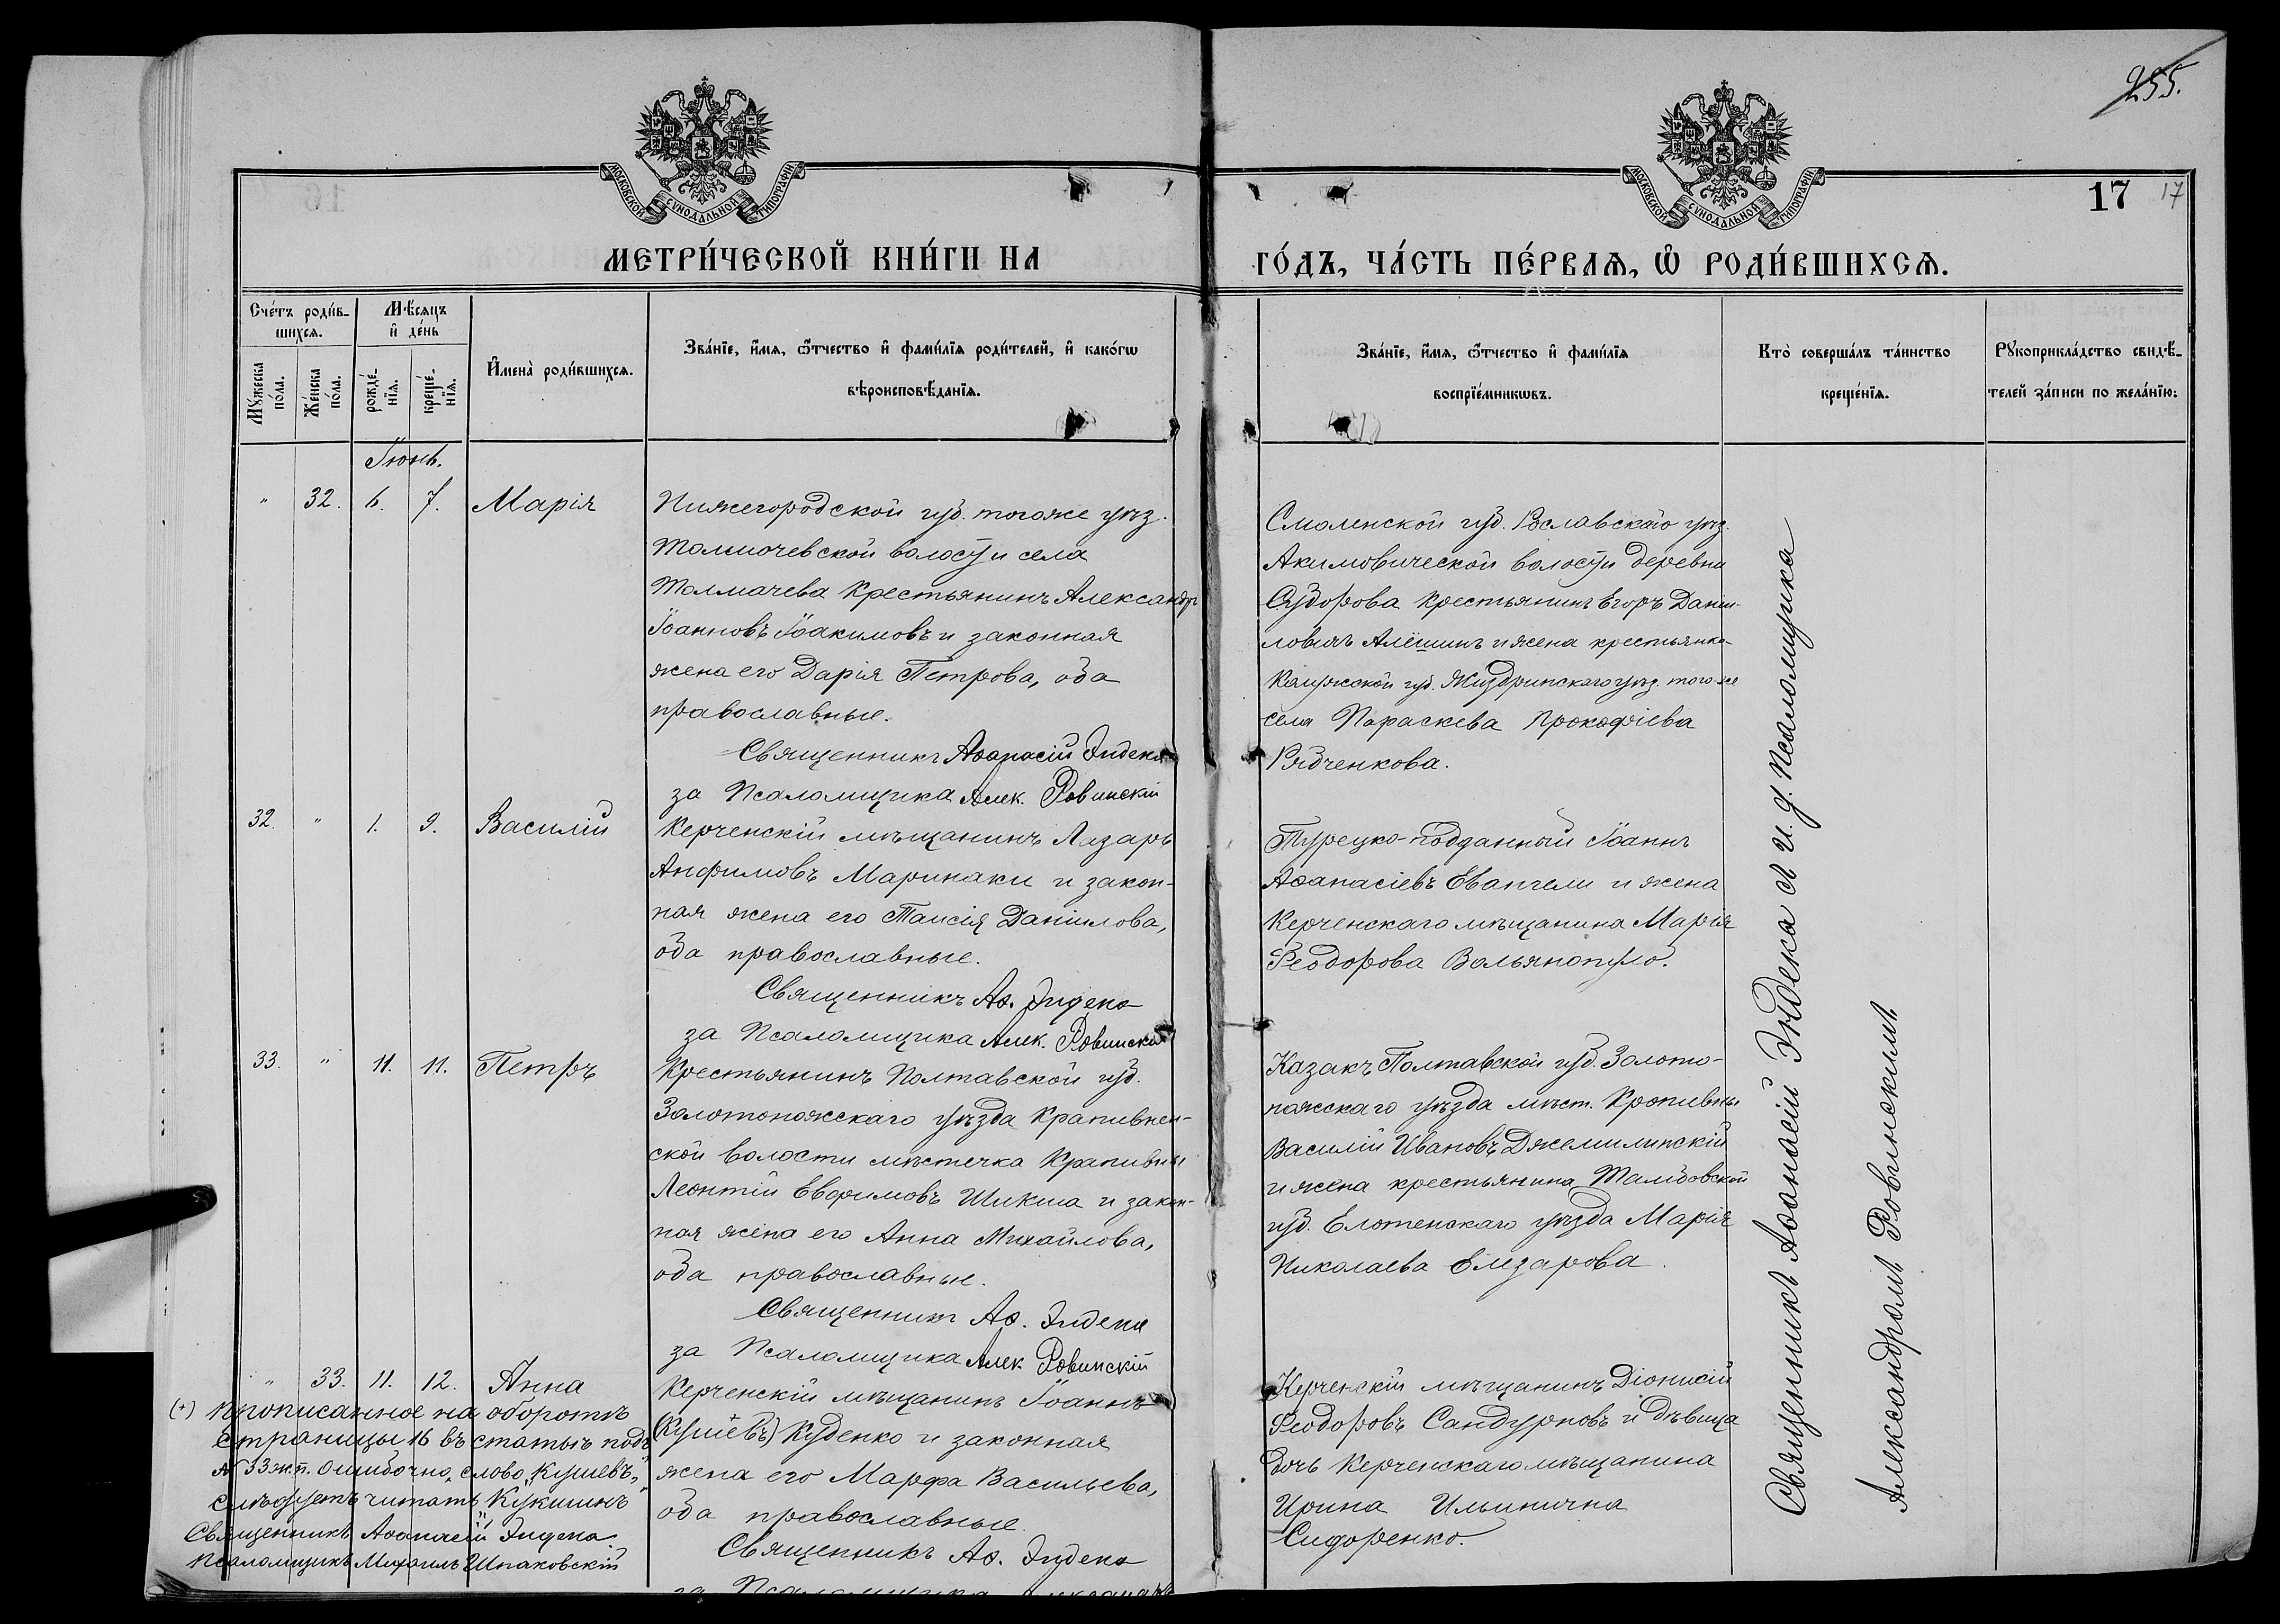 255.
МОСКОВСКОЙ СѴНОДАЛЬНОЙ ТИПОГРАФІИ
МОСКОВСКОЙ СѴНОДАЛЬНОЙ ТИПОГРАФІИ
17 17
МЕТРИ́ЧЕСКОЙ КНИ́ГИ НА
ГО́ДЪ, ЧА́СТЬ ПЕ́РВАѦ, Ѡ РОДИ́ВШИХСѦ.
Сче́тъ роди́в-
шихсѧ.
Мꙋ́жеска по́ла.
Же́нска по́ла.
Мѣ́сяцъ
и҆ де́нь
рожде́-
нїѧ.
креще́-
нїѧ.
И҆мена̀ роди́вшихсѧ.
Зва́нїе, и҆́мѧ, ѻ҆́тчество и҆ фами́лїѧ роди́телей, и҆ како́гѡ
вѣроисповѣ́данїѧ.
Зва́нїе, и҆́мѧ, ѻ҆́тчество и҆ фами́лїѧ
воспрїе́мникѡвъ.
Кто̀ соверша́лъ та́инство
креще́нїѧ.
Рꙋкоприкла́дство свидѣ́-
телей за́писи по жела́нїю:
Іюнь.
" 32. 6. 7. Марія
Нижегородской губ. тогоже уѣз.
Толмочевской волости села
Толмачева крестьянинъ Александръ
Іоанновъ Іоакимовъ и законная
жена его Дарія Петрова, оба
православные.
Священникъ Аѳанасій Эндека
за Псаломщика Алек. Ровинскій
Смоленской губ. Рославскаго уѣз.
Акимовической волости деревни
крестьянинъ Егоръ Дани-
ловичъ Алёшинъ и жена крестьянка
Калужской губ. Жиздринскаго уѣз. того-же
села Параскева Прокофіева
Рябченкова.
32. " 1. 9. Василій
Керченскій мѣщанинъ Лазарь
Анфимовъ Маринаки и закон-
ная жена его Таисія Даніилова,
оба православные.
Священникъ Аѳ. Эндека
за Псаломщика Алек. Ровинскій
Турецко-подданный Іоаннъ
Аѳанасіевъ Евангели и жена
Керченскаго мѣщанина Марія
Феодорова Вальянопуло.
33. " 11. 11. Петръ
Крестьянинъ Полтавской губ.
Золотоножскаго уѣзда Крапивнен-
ской волости мѣстечка Крапивны
Леонтій Евфимовъ Шикша и закон-
ная жена его Анна Михайлова,
оба православные.
Священникъ Аѳ. Эндека
за Псаломщика Алек Ровинскій
Казакъ Полтавской губ. Золото-
ножскаго уѣзда мѣст. Кропивны
Василій Ивановъ Джемилинскій
и жена крестьянина Тамбовской
губ. Елотенскаго уѣзда Марія
Николаева Елезарова.
" 33. 11. 12. Анна
Керченскій мѣщанинъ Іоаннъ
(Кушевъ) Куденко и законная
жена его Марфа Васильева,
оба православные.
Священникъ Аѳ. Эндека
за Псаломщика Александръ
Керченскій мѣщанинъ Діонисій
Феодоровъ Сандурновъ и дѣвица
дочь Керченскаго мѣщанина
Ирина Ильинична
Сидоренко.
(+) Прописанное на оборотѣ
страницы 16 въ статьѣ подъ
№ 33 ж.п. ошибочно слово „Кушевъ„
слѣдуетъ читать „Кукишнъ"
Священникъ Аѳанасій Эндека.
Псаломщикъ Михаилъ Шпаковскій
Священникъ Аѳанасій Эндека и и. д. Псаломщика
Александръ Ровинскій